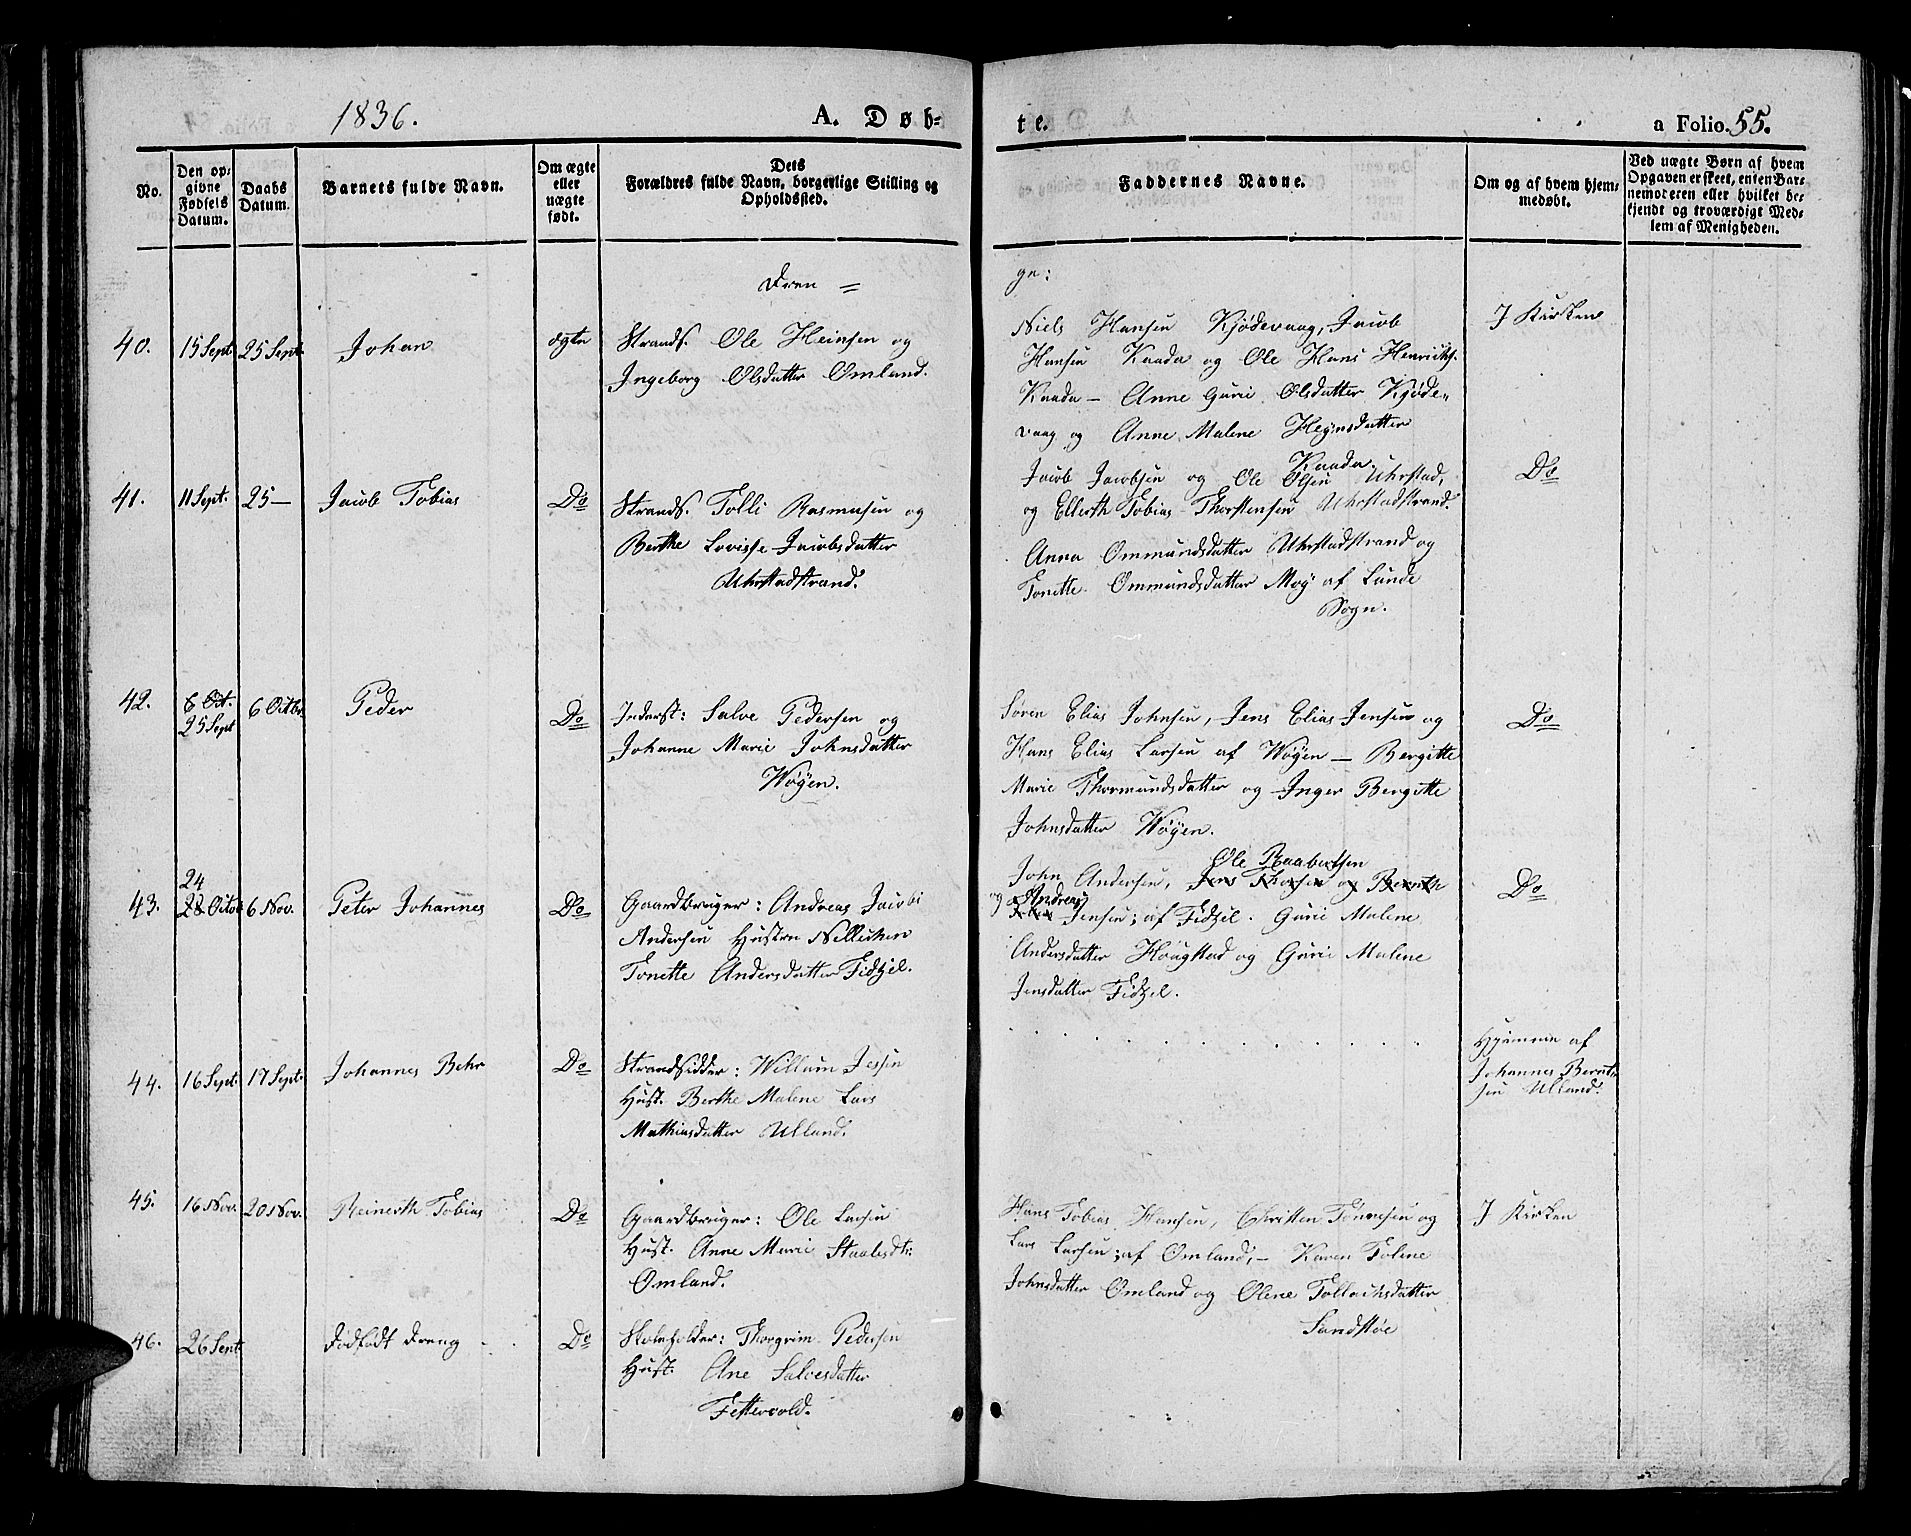 1836.
A. Døb-
te.
a Folio. 55.
No.
Den op-
givne
Fødsels
Datum.
Daabs
Datum.
Barnets fulde Navn.
Om ægte
eller
uægte
født.
Dets
Forældres fulde Navn, borgerlige Stilling og
Opholdssted.
Faddernes Navne.
Om og af hvem hjem-
medøbt.
Ved uægte Børn af hvem
Opgaven er skeet, enten Bar-
nemoderen eller hvilket be-
kjendt og troværdigt Med-
lem af Menigheden.
Dren =
ge:
40.
15 Sept.
25 Sept.
Johan
ægte
Strands. Ole Heinsen og
Ingeborg Olsdatter Omland.
Niels Hansen Kjødevaag, Jacob
Hansen Kaada og Ole Hans Henriks.
Kaada – Anne Gurie Olsdatter Kjøde-
vaag og Anne Malene Heynsdatter
Kaada.
I Kirken
41.
11 Sept.
25 –
Jacob Tobias
Do
Strands. Tolli Rasmusen og
Berthe Lovisse Jacobsdatter
Uhrstadstrand.
Jacob Jacobsen og Ole Olsen Uhrstad,
og Ellerth Tobias Thorstensen Uhrstadstrand.
Anna Ommundsdatter Uhrstadstrand og
Tonette Ommundsdatter Moy af Lunde
Sogn.
Do
42.
6 Oct.
25 Sept
6 Octbr
Peder
Do
Inderst: Salve Pedersen og
Johanne Marie Johnsdatter
Wøyen.
Søren Elias Johnsen, Jens Elias Jensen og
Hans Elias Larsen af Wøyen – Bergitte
Marie Thormundsdatter og Inger Bergitte
Johnsdatter Wøyen.
Do
43.
24
28 Octbr
6 Nov.
Peter Johannes
Do
Gaardbruger: Andreas Jacobi
Andersen Hustru Nellichen
Tonette Andersdatter Fidzel.
Ole Raabertsen
John Andersen, Jens Thorsen og Bernth
og Andreas Jensen; af Fidzel. Gurie Malene
Andersdatter Hougstad og Gurie Malene
Jensdatter Fidzel.
Do
44.
16 Sept.
17 Sept.
Johannes Behr
Do
Strandsidder: Willum Jessen
Hust. Berthe Malene Lars
Mathiasdatter Ulland.
Hjemme af
Johannes Bernt-
sen Ulland.
45.
16 Nov.
20 Nov.
Reinerth Tobias
Do
Gaardbruger: Ole Larsen
Hust. Anne Marie Staalesdtr:
Omland.
Hans Tobias Hansen, Christen Tønnesen og
Lars Larsen; af Omland, – Karen Toline
Johnsdatter Omland og Olene Tollachsdatter
Sandstøe
I Kirken
46.
26 Sept
Dødfødt Dreng
Do
Skoleholder: Thorgrim Pedersen
Hust. Ane Salvesdatter
Fettervold.